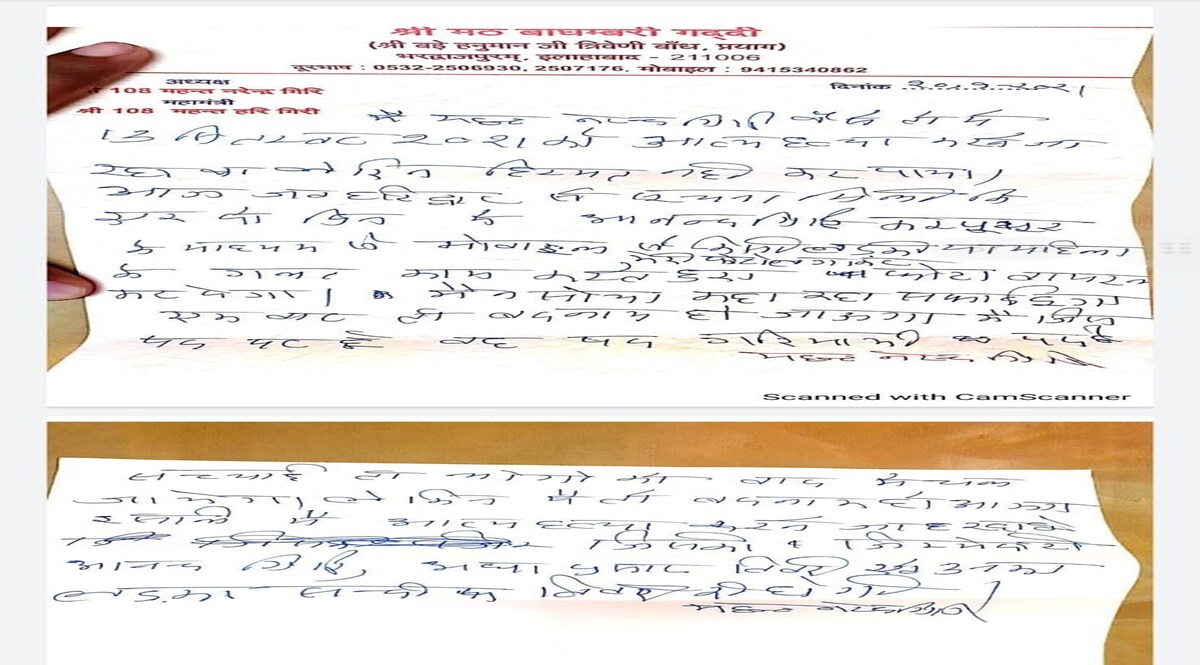 श्री मठ बाघम्बरी गद्दी
(श्री बड़े हनुमान जी त्रिवेणी बाँध, प्रयाग)
भरद्वाजपुरम्, इलाहाबाद - 211006
दूरभाष : 0532-2506930, 2507176. मोबाइल : 9415340862
अध्यक्ष
श्री 108 महन्त नरेन्द्र गिरि
महामंत्री
श्री 108 महन्त हरि गिरी
दिनांक
मै महन्त नरेन्द्र गिरि
13 सितम्बर 2021 को आत्म हत्या करने जा
रहा था लेकिन हिम्मत नही कर पाया।
आज जब हरिद्वार से सूचना मिली कि
एक दो दिन मे आनन्द गिरि कम्प्यूटर
के माध्यम से मोबाइल से किसी लड़की या महिला
के गलत काम करते हुए फोटो वायरल
कर देगा। मैने सोचा कहा तक सफाई दूंगा
एक बार तो बदनाम हो जाऊगा मै जिस
पद पर है वह पद गरिमामयी पद है
महन्त नरेन्द्र गिरि
Scanned with CamScanner
सच्चाई तो लोगो को बाद मे चल
जायेगा लेकिन मै तो बदनाम हो जाऊगा
इसलिए मै आत्म हत्या करने जा रहा हूँ
जिसकी जिम्मेदारी
आनन्द गिरि, आद्या प्रसाद तिवारी एवं उनका
लड़का सन्दीप तिवारी की होगी।
महन्त नरेन्द्र गिरि